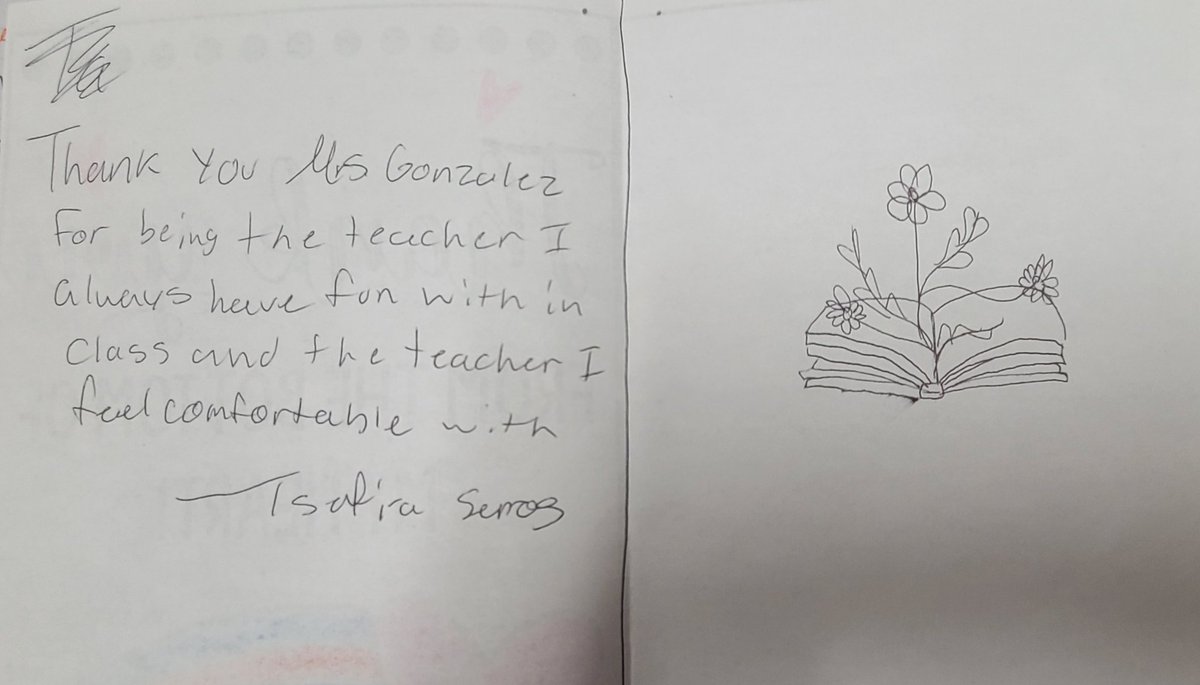 Thank You Mrs Gonzalez
For being the teacher I
always have fun with in
class and the teacher I
feel comfortable with